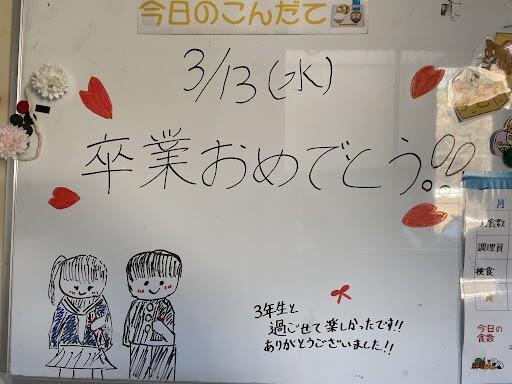 今日のこんだて
3/13(水)
卒業おめでとう!!
3年生と
過ごせて楽しかったです!!
ありがとうございました!!
月
調理員
検食
今日の
食数